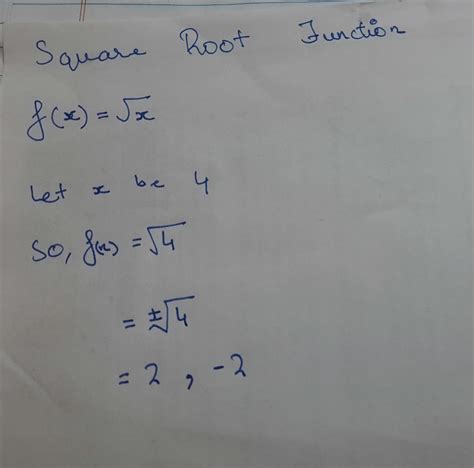 Square Root Function
f(x) = √x
Let x be 4
So, f(x) = √4
= ±√4
= 2 , -2